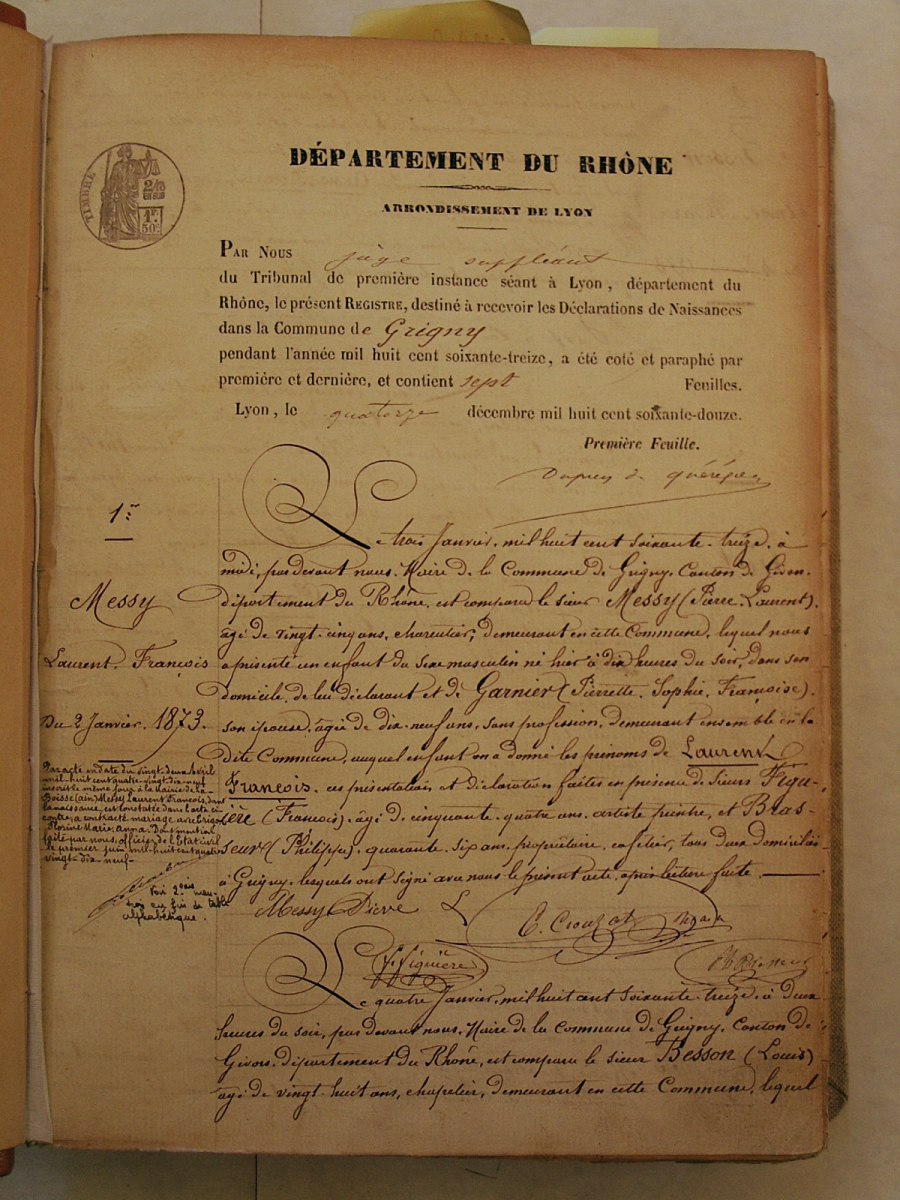 TIMBRE
2/10
EN SUS
1F.
50c.
DÉPARTEMENT DU RHÔNE
ARRONDISSEMENT DE LYON
PAR NOUS juge suppléant
du Tribunal de première instance séant à Lyon, département du
Rhône, le présent REGISTRE, destiné à recevoir les Déclarations de Naissances
dans la Commune de Grigny
pendant l'année mil huit cent soixante-treize, a été coté et paraphé par
première et dernière, et contient sept Feuilles.
Lyon, le quatorze décembre mil huit cent soixante-douze.
Première Feuille.
1er
Messy
Laurent François
Du 2 Janvier 1873.
Par acte en date du vingt-deux Avril
mil-huit cent quatre-vingt-dix-neuf
inscrit le même jour à la Mairie de La
Boisse (ain) Messy Laurent François, dont
la naissance est constatée dans l'acte ci-
contre, a contracté mariage avec
Florine Marie Anna. Dont mention
faite par nous, officier de l'Etat civil
le premier juin mil-huit cent quatre
vingt-dix-neuf.
Voir 2e
en fin de table
alphabétique.
Le trois Janvier, mil huit cent soixante-treize, à
midi, par devant nous, Maire de la Commune de Grigny, Canton de Givors,
département du Rhône, est comparu le sieur Messy (Pierre Laurent),
âgé de vingt-cinq ans, charcutier, demeurant en cette Commune, lequel nous
a présenté un enfant du sexe masculin né hier à dix heures du soir, dans son
domicile, de lui déclarant et de Garnier (Pierrette, Sophie, Françoise),
son épouse, âgée de dix-neuf ans, sans profession, demeurant ensemble en la
dite Commune, auquel enfant on a donné les prénoms de Laurent
François. ces présentation et déclaration faites en présence de Sieurs Figu-
ière (François), âgé de cinquante-quatre ans, artiste peintre, et Bras-
seur (Philippe), quarante-six ans, propriétaire, cafetier, tous deux domiciliés
à Grigny, lesquels ont signé avec nous le présent acte, après lecture faite.
Messy Pierre L
E. Crouzat
F. Figuière
Le quatre Janvier, mil huit cent soixante-treize, à deux
heures du soir, par devant nous, Maire de la Commune de Grigny, Canton de
Givors, département du Rhône, est comparu le sieur Besson (Louis)
âgé de vingt-huit ans, chapelier, demeurant en cette Commune, lequel